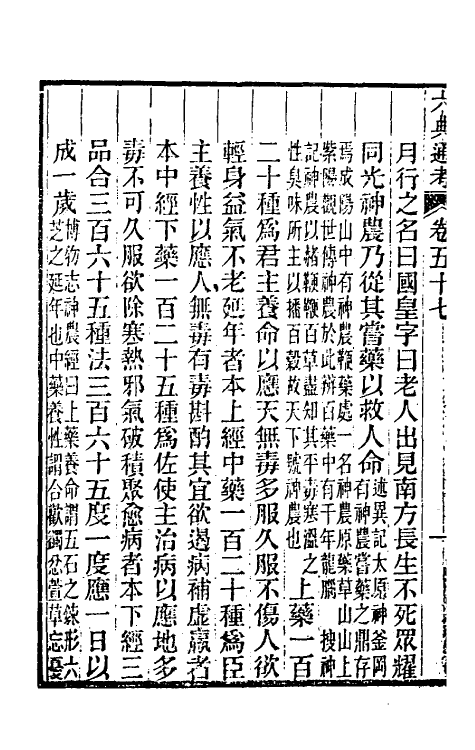 六典通考 卷五十七
月行之名曰國皇字曰老人出見南方長生不死眾耀
同光神農乃從其嘗藥以救人命述異記太原神釜岡有神農嘗藥之鼎存
焉成陽山中有神農鞭藥處一名神農原藥草山山上
紫陽觀世傳神農於此辨百藥中有千年龍腦 搜神
記神農以赭鞭鞭百草盡知其平毒寒溫之
性臭味所主以播百穀故天下號神農也上藥一百
二十種爲君主養命以應天無毒多服久服不傷人欲
輕身益氣不老延年者本上經中藥一百二十種爲臣
主養性以應人無毒有毒斟酌其宜欲遏病補虛羸者
本中經下藥一百二十五種爲佐使主治病以應地多
毒不可久服欲除寒熱邪氣破積聚愈病者本下經三
品合三百六十五種法三百六十五度一度應一日以
成一歲博物志神農經曰上藥養命謂五石之鍊形六
芝之延年也中藥養性謂合歡蠲忿萱草忘憂